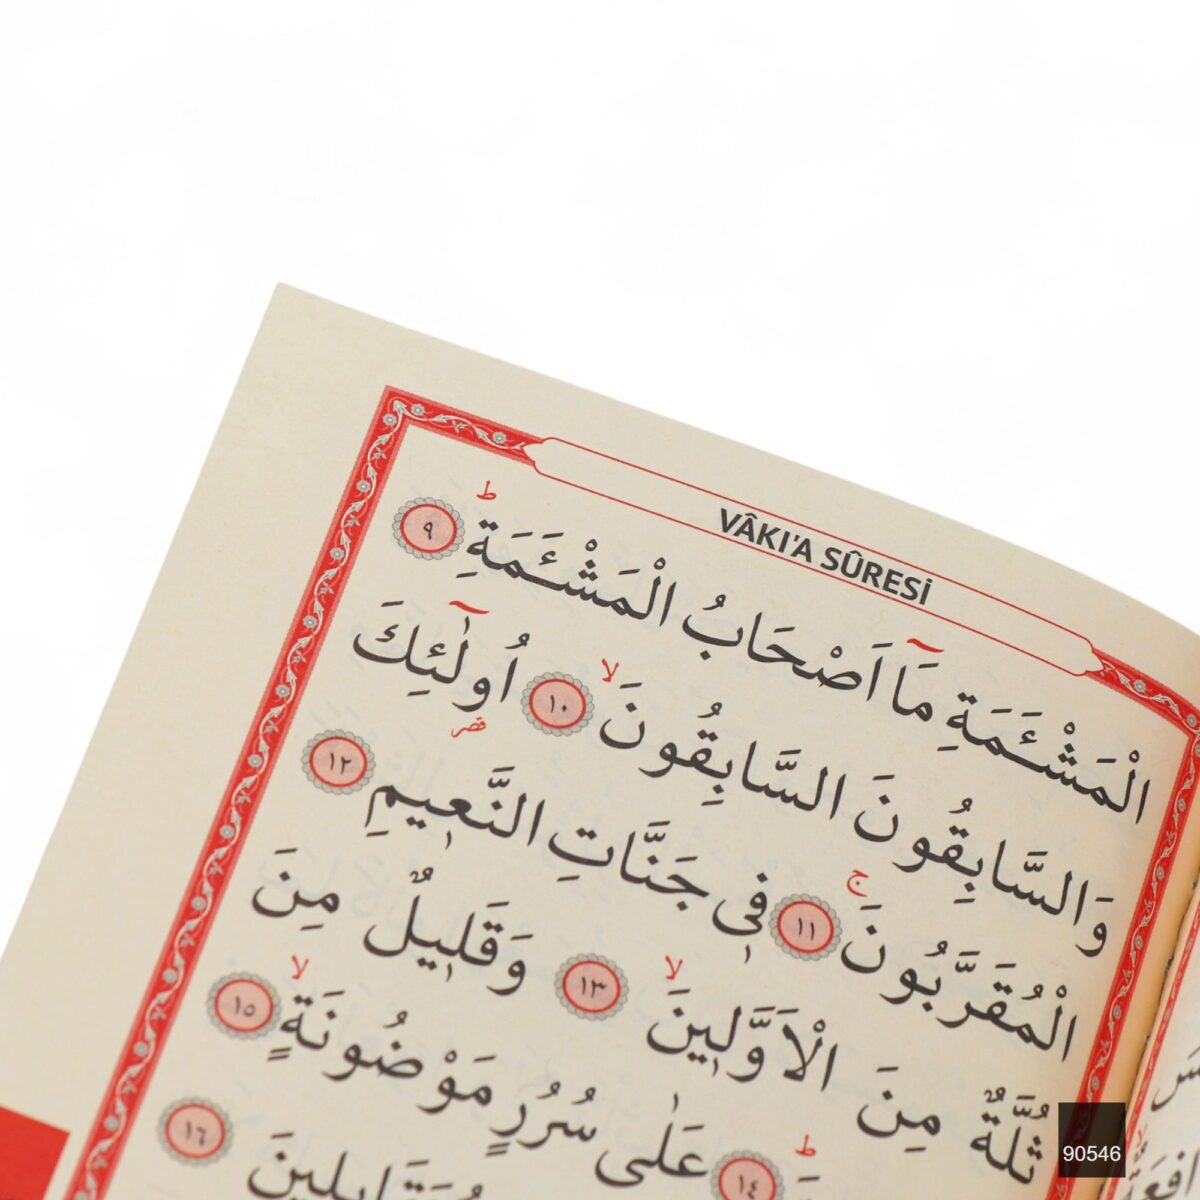 VÂKI'A SÛRESİ
الْمَشْـَٔمَةِ مَٓا اَصْحَابُ الْمَشْـَٔمَةِ ط ٩
وَالسَّابِقُونَ السَّابِقُونَ لا ١٠ اُولٰٓئِكَ قصر
الْمُقَرَّبُونَ ج ١١ فٖى جَنَّاتِ النَّعٖيمِ ١٢
ثُلَّةٌ مِنَ الْاَوَّلٖينَ لا ١٣ وَقَلٖيلٌ مِنَ
ط ١٤ عَلٰى سُرُرٍ مَوْضُونَةٍ لا ١٥
١٦
90546